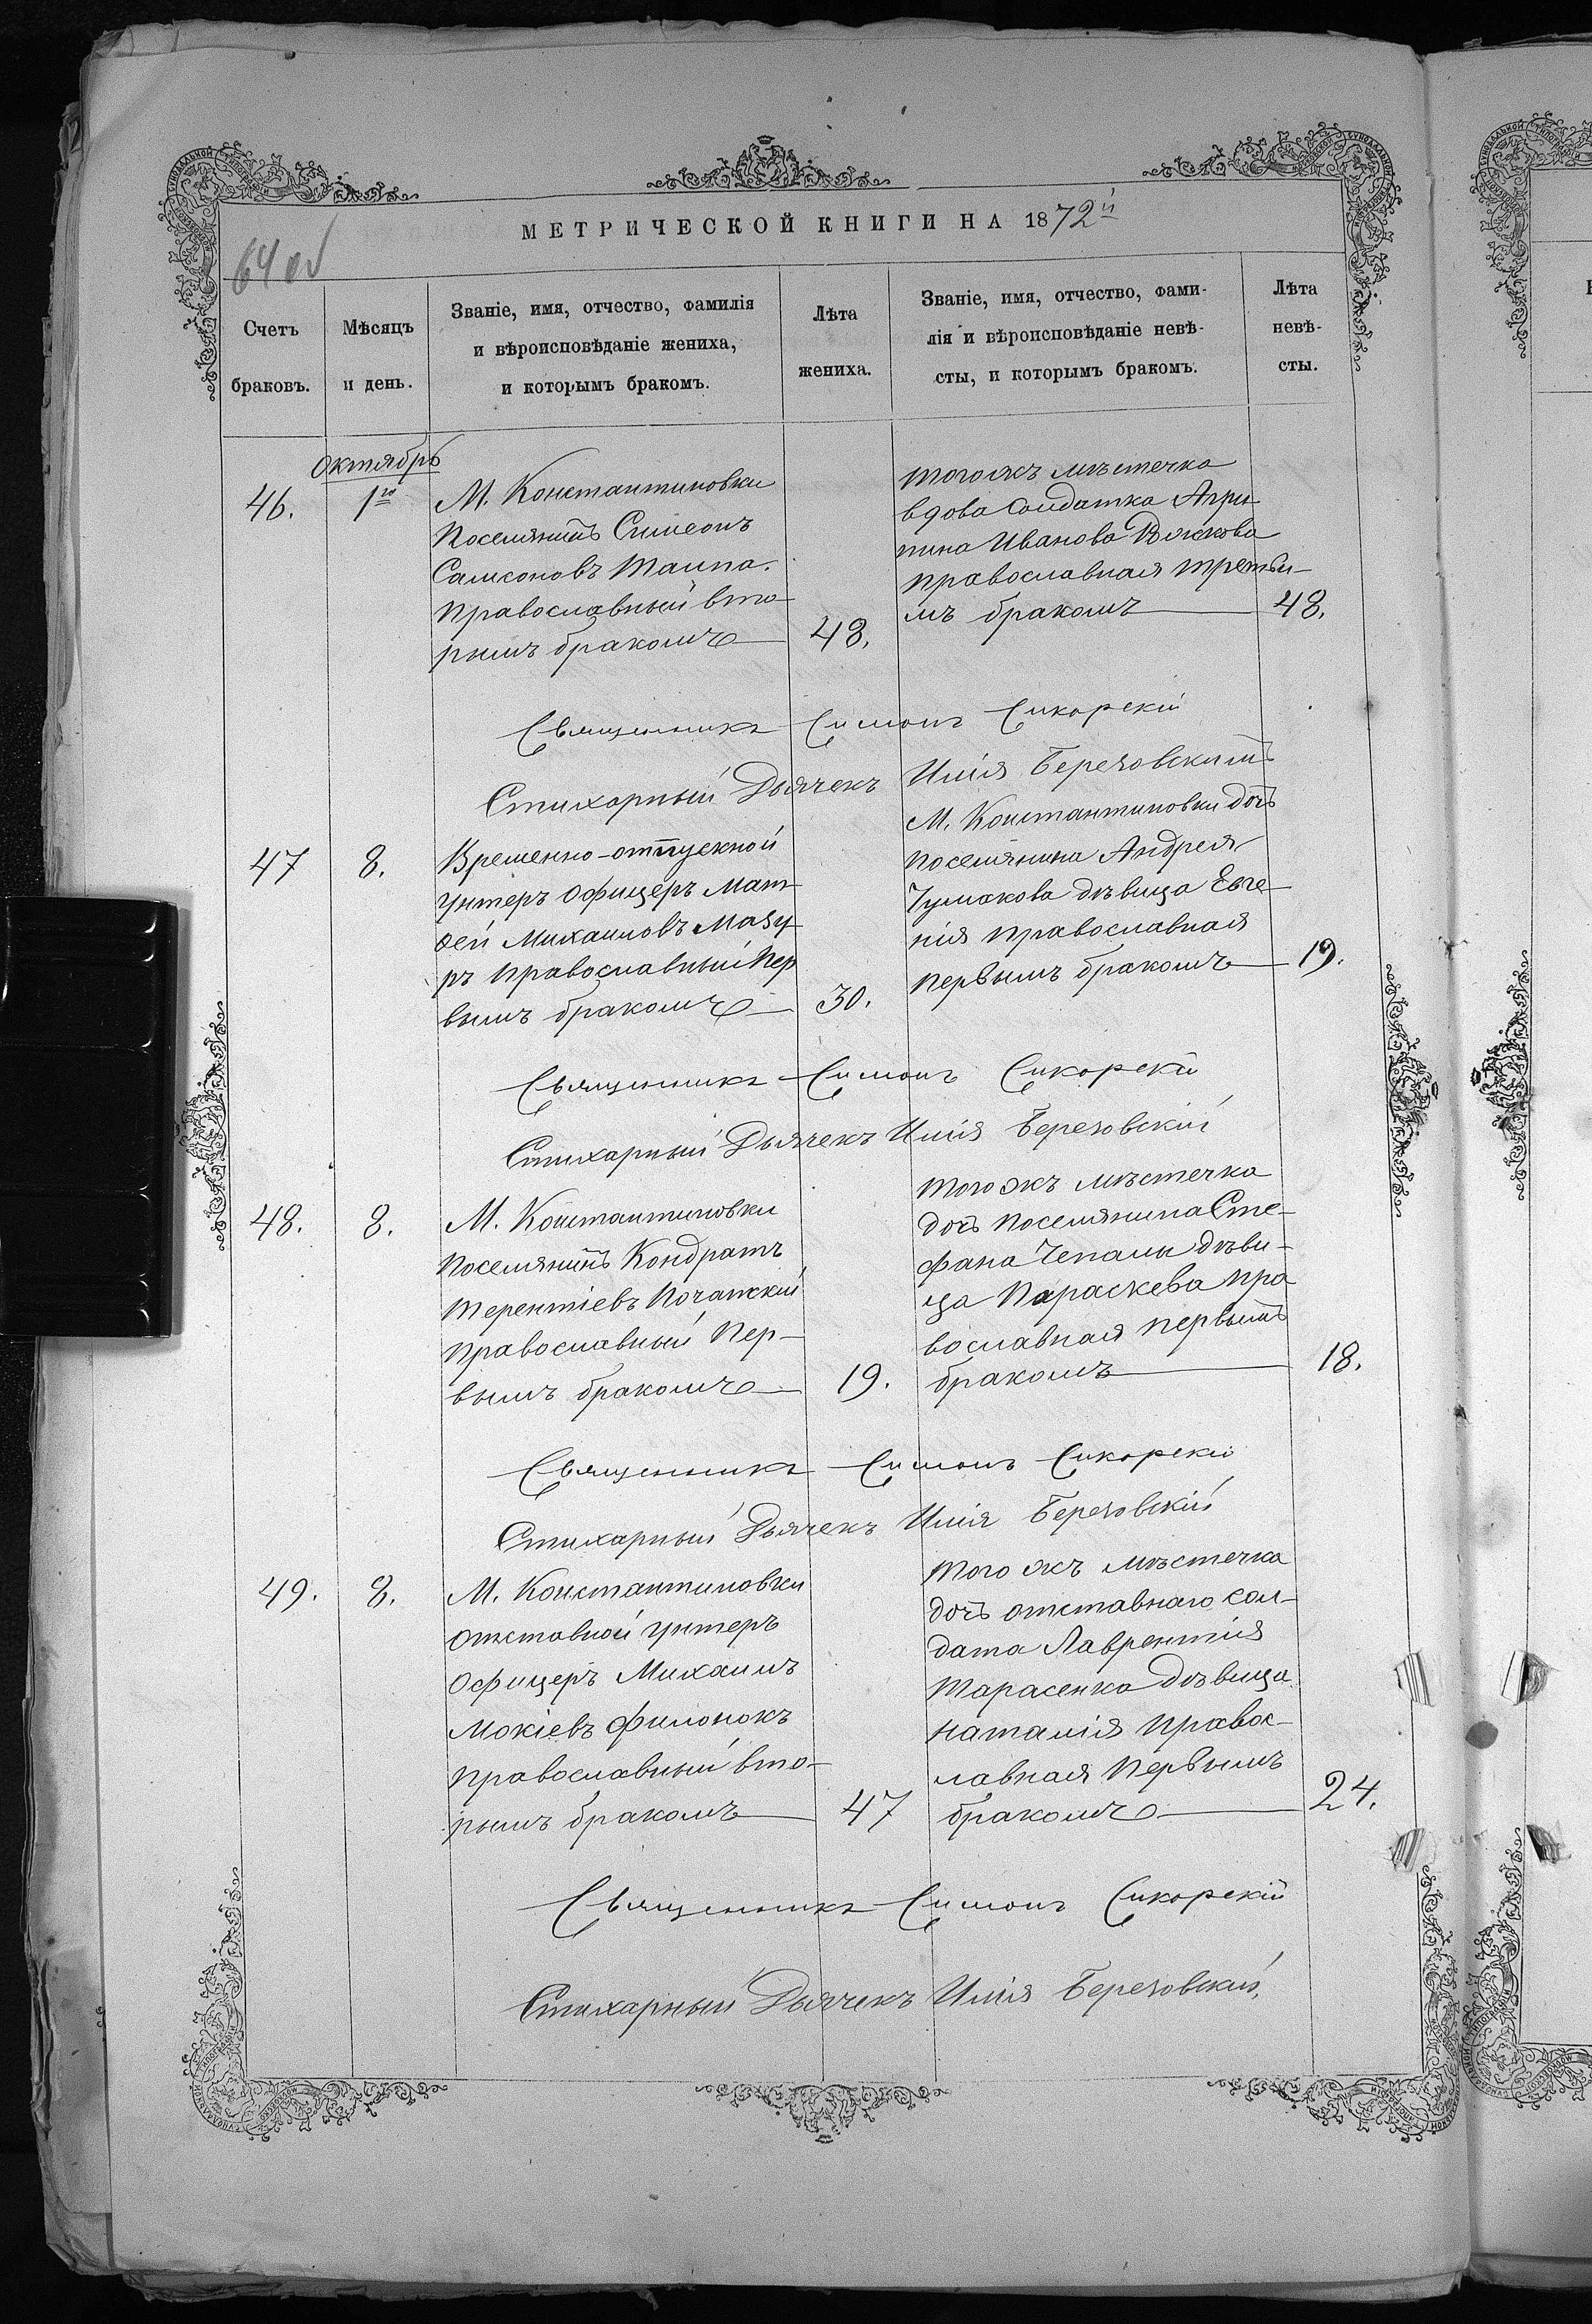 МЕТРИЧЕСКОЙ КНИГИ НА 1872й
64 об
Счетъ браковъ.
Мѣсяцъ и день.
Званіе, имя, отчество, фамилія
и вѣроисповѣданіе жениха,
и которымъ бракомъ.
Лѣта
жениха.
Званіе, имя, отчество, фами-
лія и вѣроисповѣданіе невѣ-
сты, и которымъ бракомъ.
Лѣта
невѣ-
сты.
Октябрь
46.
1го
М. Константиновки
Поселянинъ Симеонъ
Самсоновъ Таипа.
Православный вто-
рымъ бракомъ
48.
того жъ мѣстечка
вдова Солдатка Агри-
пина Иванова
православная третьи-
мъ бракомъ
48.
Священникъ Симонъ Сикорскій
Стихарный Дьячекъ Илія Березовскій
47
8.
Временно-отпускной
унтеръ офицеръ Мат-
фей Михаиловъ Мазу-
ръ православный пер
вымъ бракомъ
30.
М. Константиновки дочь
поселянина Андрея
Чумакова дѣвица Евге-
нія православная
первымъ бракомъ
19.
Священникъ Симонъ Сикорскій
Стихарный Дьячекъ Илія Березовскій
48.
8.
М. Константиновки
поселянинъ Кондратъ
Терентіевъ Почапскій
православный Пер-
вымъ бракомъ
19.
того жъ мѣстечка
дочь поселянина Сте-
фана Чепалы дѣви-
ца Параскева пра
вославная первымъ
бракомъ
18.
Священникъ Симонъ Сикорскій
Стихарный Дьячекъ Илія Березовскій
49.
8.
М. Константиновки
отставной унтеръ
офицеръ Михаилъ
Мокіевъ Филонокъ
православный вто-
рымъ бракомъ
47
того жъ мѣстечка
дочь отставнаго сол-
дата Лаврентія
Тарасенка дѣвица
Наталія правос-
лавная Первымъ
бракомъ
24.
Священникъ Симонъ Сикорскій
Стихарный Дьячекъ Илія Березовскій,